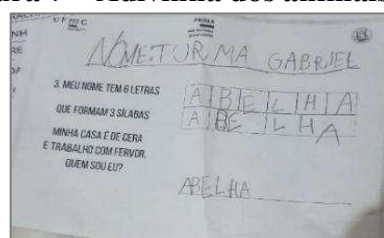 UFMG
PROEX
NH
RE
NOME: TURMA GABRIEL
3. MEU NOME TEM 6 LETRAS
QUE FORMAM 3 SÍLABAS
MINHA CASA É DE CERA
E TRABALHO COM FERVOR.
QUEM SOU EU?
A B E L H A
A BE LHA
ABELHA